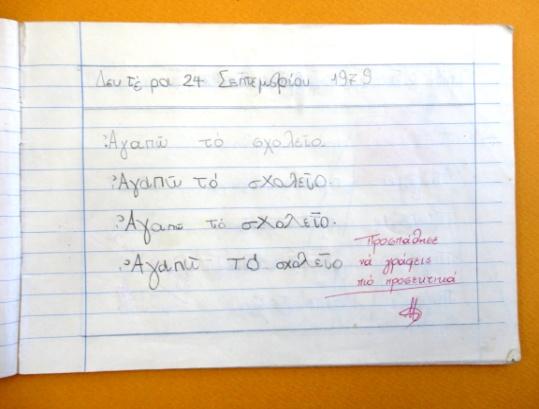 Δευτέρα 24 Σεπτεμβρίου 1979
Ἀγαπῶ τό σχολεῖο.
Ἀγαπῶ τό σχολεῖο.
Ἀγαπῶ τό σχολεῖο.
Ἀγαπῶ τό σχολεῖο
Προσπάθησε
νά γράφεις
πιό προσεκτικά